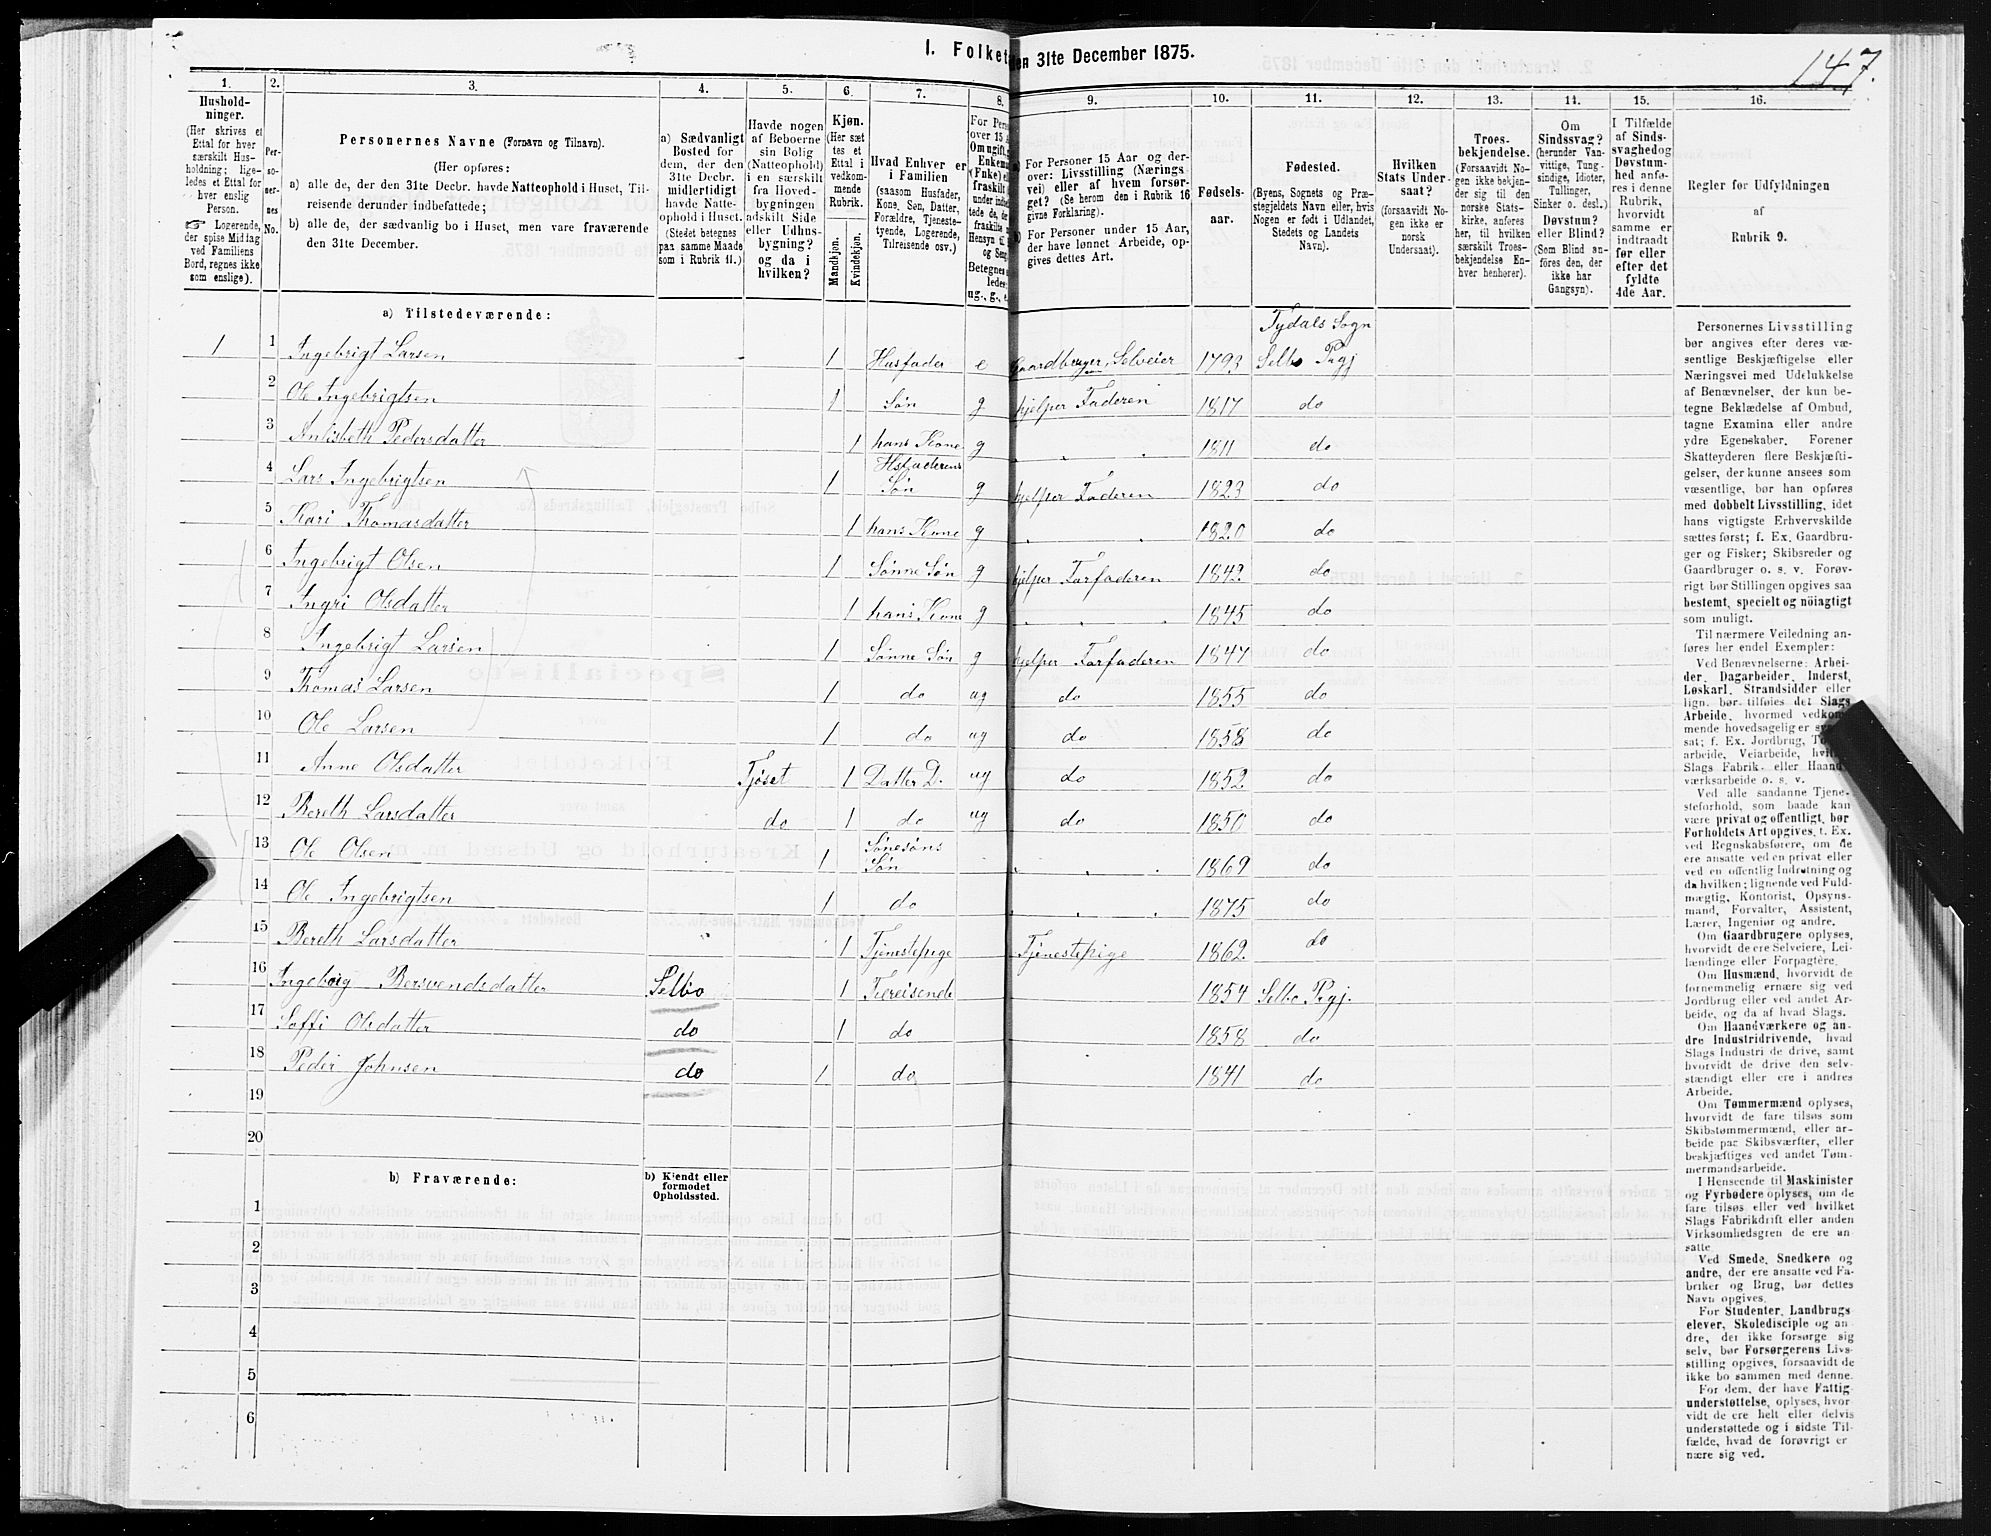 I. Folket
den 31te December 1875.
147.
1.
2.
3.
4.
5.
6.
7.
8.
9.
10.
11.
12.
13.
14.
15.
16.
Hushold-
ninger.
(Her skrives et
Ettal for hver
særskilt Hus-
holdning; lige-
ledes et Ettal for
hver enslig
Person.
☞ Logerende,
der spise Middag
ved Familiens
Bord, regnes ikke
som enslige).
Per-
so-
ner-
nes
No.
Personernes Navne (Fornavn og Tilnavn).
(Her opføres:
a) alle de, der den 31te Decbr. havde Natteophold i Huset, Til-
reisende derunder indbefattede;
b) alle de, der sædvanlig bo i Huset, men vare fraværende
den 31te December.
a) Sædvanligt
Bosted for
dem, der den
31te Decbr.
midlertidigt
havde Natte-
ophold i Huset.
(Stedet betegnes
paa samme Maade
som i Rubrik 11.)
Havde nogen
af Beboerne
sin Bolig
(Natteophold)
i en særskilt
fra Hoved-
bygningen
adskilt Side
eller Udhus-
bygning?
og da i
hvilken?
Kjøn.
(Her sæt
tes et
Ettal i
vedkom-
mende
Rubrik.
Mandkjøn.
Kvindekjøn.
Hvad Enhver er
i Familien
(saasom Husfader,
Kone, Søn, Datter,
Forældre, Tjeneste-
tyende, Logerende,
Tilreisende osv.)
a) For Personer 15 Aar og der-
over: Livsstilling (Nærings
vei) eller af hvem forsør-
get? (Se herom den i Rubrik 16
givne Forklaring).
For Personer under 15 Aar,
der have lønnet Arbeide, op-
gives dettes Art.
Fødsels-
aar.
Fødested.
(Byens, Sognets og Præ-
stegjeldets Navn eller, hvis
Nogen er født i Udlandet,
Stedets og Landets
Navn).
Hvilken
Stats Under-
saat?
(forsaavidt No-
gen ikke er
norsk
Undersaat).
Troes-
bekjendelse.
(Forsaavidt No-
gen ikke bekjen-
der sig til den
norske Stats-
kirke, anføres
her, til hvilken
særskilt Troes-
bekjendelse En-
hver henhører).
Om
Sindssvag?
(herunder Van-
vittige, Tung-
sindige, Idioter,
Tullinger,
Sinker o. desl.)
Døvstum?
eller Blind?
(Som Blind an-
føres den, der
ikke har
Gangsyn).
I Tilfælde
af Sinds-
svaghed og
Døvstum-
hed anfø-
res i denne
Rubrik,
hvorvidt
samme er
indtraadt
før eller
efter det
fyldte
4de Aar.
Regler for Udfyldningen
af
Rubrik 9.
a) Tilstedeværende:
Tydals Sogn
1 1 Ingebrigt Larsen 1 Husfader e Gaardbruger, Selveier 1793 Selbo Prgj
2 Ole Ingebrigtsen 1 Søn g hjelper Faderen 1817 do
3 Anlisbeth Pedersdatter 1 hans Kone g " " " 1811 do
Hsfaderens
4 Lars Ingebrigtsen 1 Søn g hjelper Faderen 1823 do
5 Kari Thomasdatter 1 hans Kone g " " 1820 do
6 Ingebrigt Olsen 1 Sønne Søn g hjelper Farfaderen 1842 do
7 Ingri Olsdatter 1 hans Kone g " " " 1845 do
8 Ingebrigt Larsen 1 Sønne Søn g hjelper Farfaderen 1847 do
9 Thomas Larsen 1 do ug do 1855 do
10 Ole Larsen 1 do ug do 1858 do
11 Anne Olsdatter Fjøset 1 Datter D. ug do 1852 do
12 Bereth Larsdatter do 1 do ug do 1850 do
Sønesøns
13 Ole Olsen 1 Søn " " " 1869 do
14 Ole Ingebrigtsen 1 do " " " 1875 do
15 Bereth Larsdatter 1 Tjenestepige Tjenestepige 1862 do
16 Ingeborg Bersvendsdatter Selbo 1 Tilreisende 1854 Selbo Prgj.
17 Soffi Olsdatter do 1 do 1858 do
18 Peder Johnsen do 1 do 1841 do
19
20
b) Fraværende:
b) Kjendt eller
formodet
Opholdssted.
1
2
3
4
5
6
Personernes Livsstilling
bør angives efter deres væ-
sentlige Beskjæftigelse eller
Næringsvei med Udelukkelse
af Benævnelser, der kun be-
tegne Beklædelse af Ombud,
tagne Examina eller andre
ydre Egenskaber. Forener
Skatteyderen flere Beskjæfti-
gelser, der kunne ansees som
væsentlige, bør han opføres
med dobbelt Livsstilling, idet
hans vigtigste Erhvervskilde
sættes først; f. Ex. Gaardbru-
ger og Fisker; Skibsreder og
Gaardbruger o. s. v. Forøv-
rigt bør Stillingen opgives saa
bestemt, specielt og nöiagtigt
som muligt.
Til nærmere Veiledning an-
føres her endel Exempler:
Ved Benævnelserne: Arbei-
der, Dagarbeider, Inderst,
Løskarl, Strandsidder eller
lign. bør tilføies det Slags
Arbeide, hvormed vedkom-
mende hovedsagelig er
sat; f. Ex. Jordbrug,
arbeide, Veiarbeide,
Slags Fabrik- eller Haand-
værksarbeide o. s. v.
Ved alle saadanne Tjene-
steforhold, som baade kan
være privat og offentligt, bør
Forholdets Art opgives, t. Ex.
ved Regnskabsførere, om de
ere ansatte ved en privat eller
ved en offentlig Indretning og
da hvilken; lignende ved Fuld-
mægtig, Kontorist, Opsyns-
mand, Forvalter, Assistent,
Lærer, Ingeniør og andre.
Om Gaardbrugere oplyses,
hvorvidt de ere Selveiere, Lei-
lændinge eller Forpagtere.
Om Husmænd, hvorvidt de
fornemmelig ernære sig ved
Jordbrug eller ved andet Ar-
beide, og da af hvad Slags.
Om Haandværkere og an-
dre Industridrivende, hvad
Slags Industri de drive, samt
hvorvidt de drive den selv-
stændigt eller ere i andres
Arbeide.
Om Tømmermænd oplyses,
hvorvidt de fare tilsøs som
Skibstømmermænd, eller ar-
beide paa Skibsværfter, eller
beskjæftiges ved andet Tøm-
mermandsarbeide.
I Henseende til Maskinister
og Fyrbødere oplyses, om de
fare tilsøs eller ved hvilket
Slags Fabrikdrift eller anden
Virksomhedsgren de ere an-
satte.
Ved Smede, Snedkere og
andre, der ere ansatte ved Fa-
briker og Brug, bør dettes
Navn opgives.
For Studenter, Landbrugs
elever, Skoledisciple og an-
dre, der ikke forsørge sig
selv, bør Forsørgerens Livs-
stilling opgives, forsaavidt de
ikke bo sammen med denne.
For dem, der have Fattig
understøttelse, oplyses, hvor-
vidt de ere helt eller delvis
understøttede og i sidste Til-
fælde, hvad de forøvrigt er
nære sig ved.